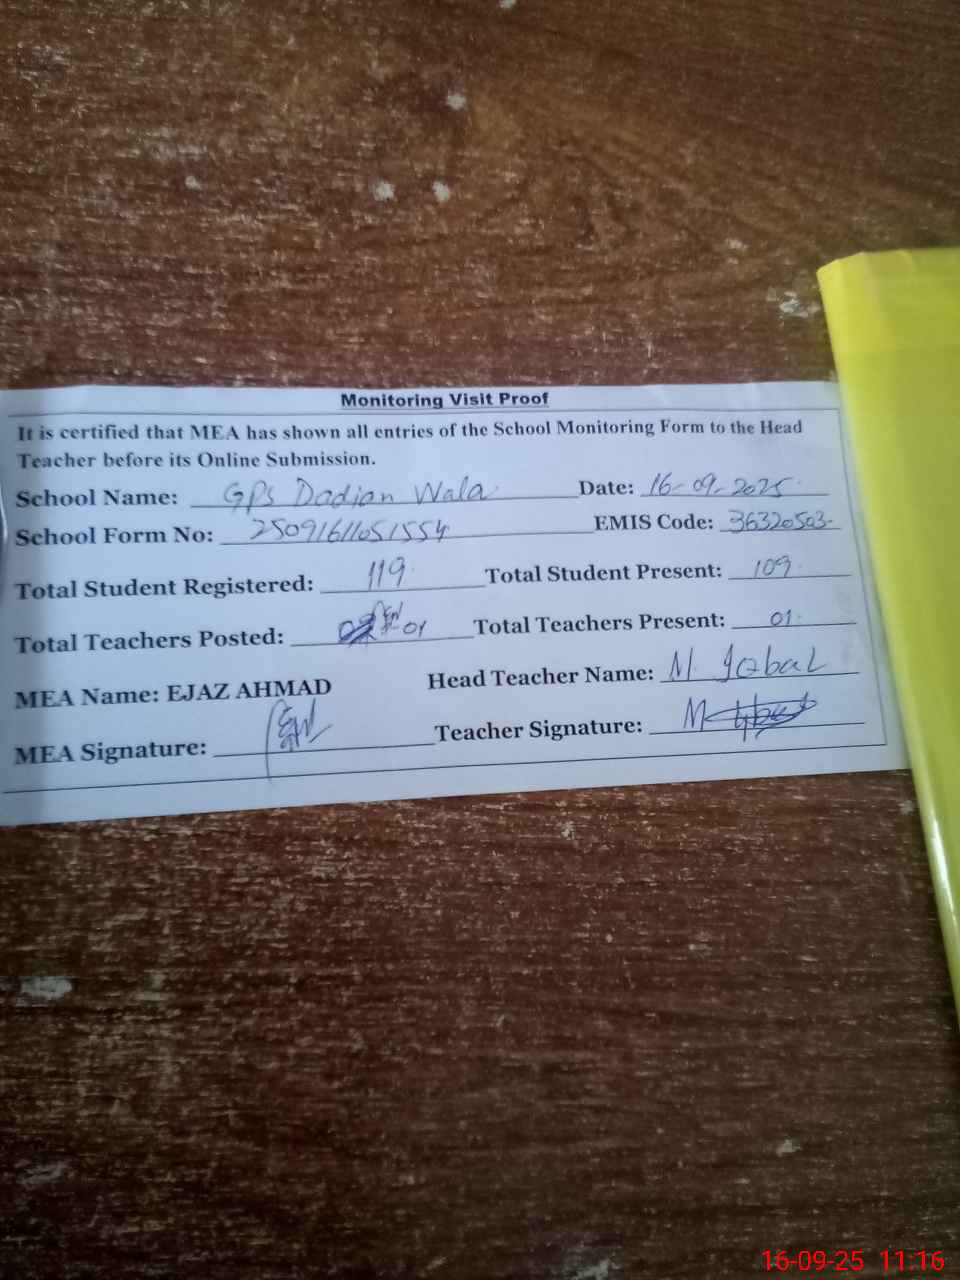 Monitoring Visit Proof
It is certified that MEA has shown all entries of the School Monitoring Form to the Head
Teacher before its Online Submission.
School Name: GPS Dadian Wala Date: 16-09-2025
School Form No: 25091611051554 EMIS Code: 36320503
Total Student Registered: 119 Total Student Present: 109
Total Teachers Posted: 01 Total Teachers Present: 01
MEA Name: EJAZ AHMAD Head Teacher Name: M Iqbal
MEA Signature: Teacher Signature:
16-09-25 11:16